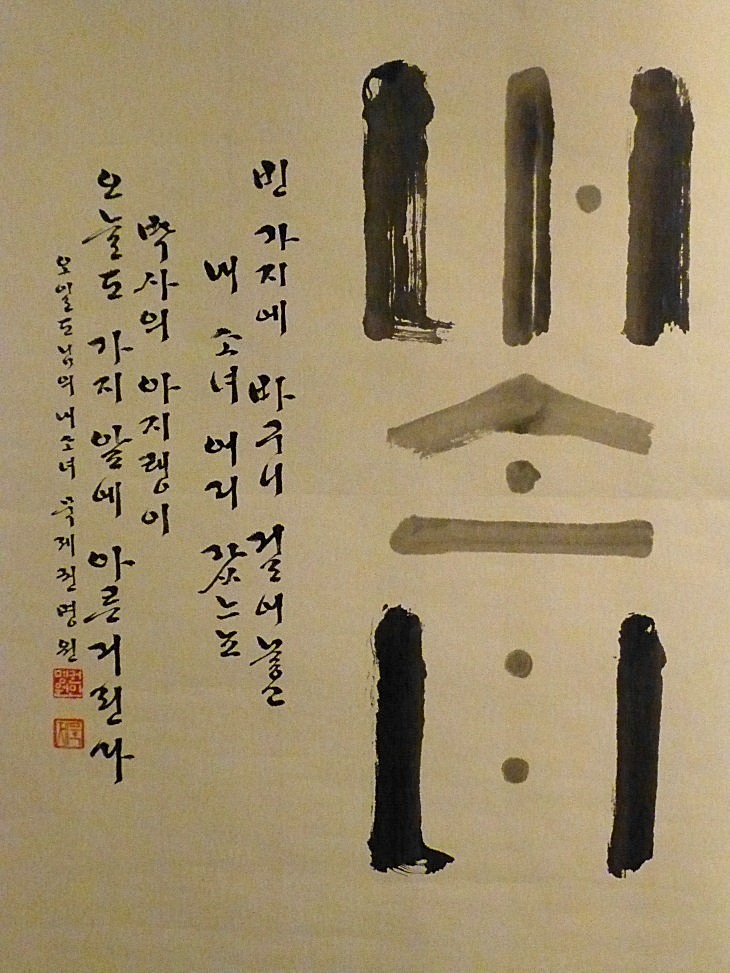 내
소
녀
빈 가지에 바구니 걸어놓고
내 소녀 어디 갔느뇨
박사의 아지랭이
오늘도 가지 앞에 아른거린다
오일도님의 내소녀 묵제전명원